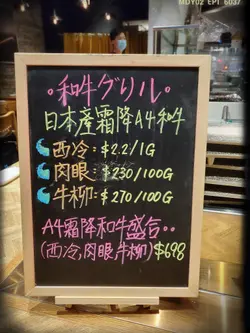 MDY02 EPT 6037
・和牛グリル・
日本產霜降A4和牛
西冷:$2.2/1G
肉眼:$230/100G
牛柳:$270/100G
A4霜降和牛盛合··
(西冷,肉眼,牛柳)$698